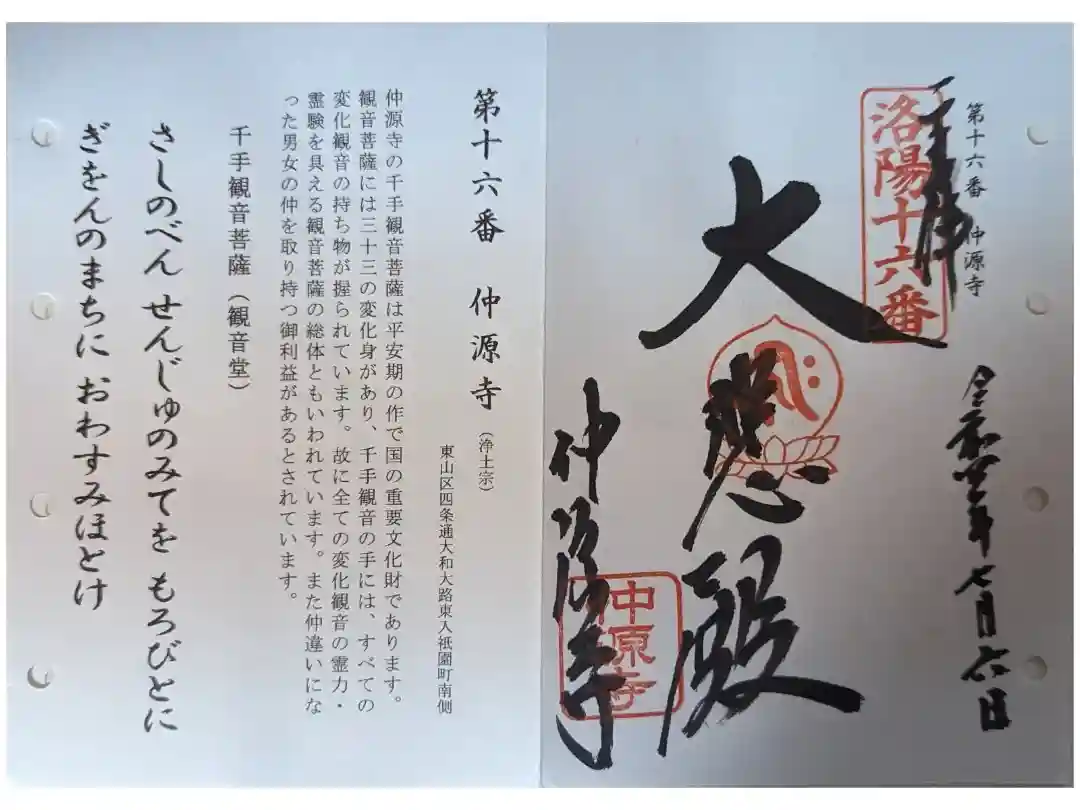 令和 年 七月 六日
第十六番 仲源寺
奉拝
洛陽十六番
大悲殿
仲源寺
仲源寺
第十六番 仲源寺(浄土宗)
東山区四条通大和大路東入祇園町南側
仲源寺の千手観音菩薩は平安期の作で国の重要文化財であります。
観音菩薩には三十三の変化身があり、千手観音の手には、すべての
変化観音の持ち物が握られています。故に全ての変化観音の霊力・
霊験を具える観音菩薩の総体ともいわれています。また仲違いにな
った男女の仲を取り持つ御利益があるとされています。
千手観音菩薩(観音堂)
さしのべん せんじゅのみてを もろびとに
ぎをんのまちに おわすみほとけ